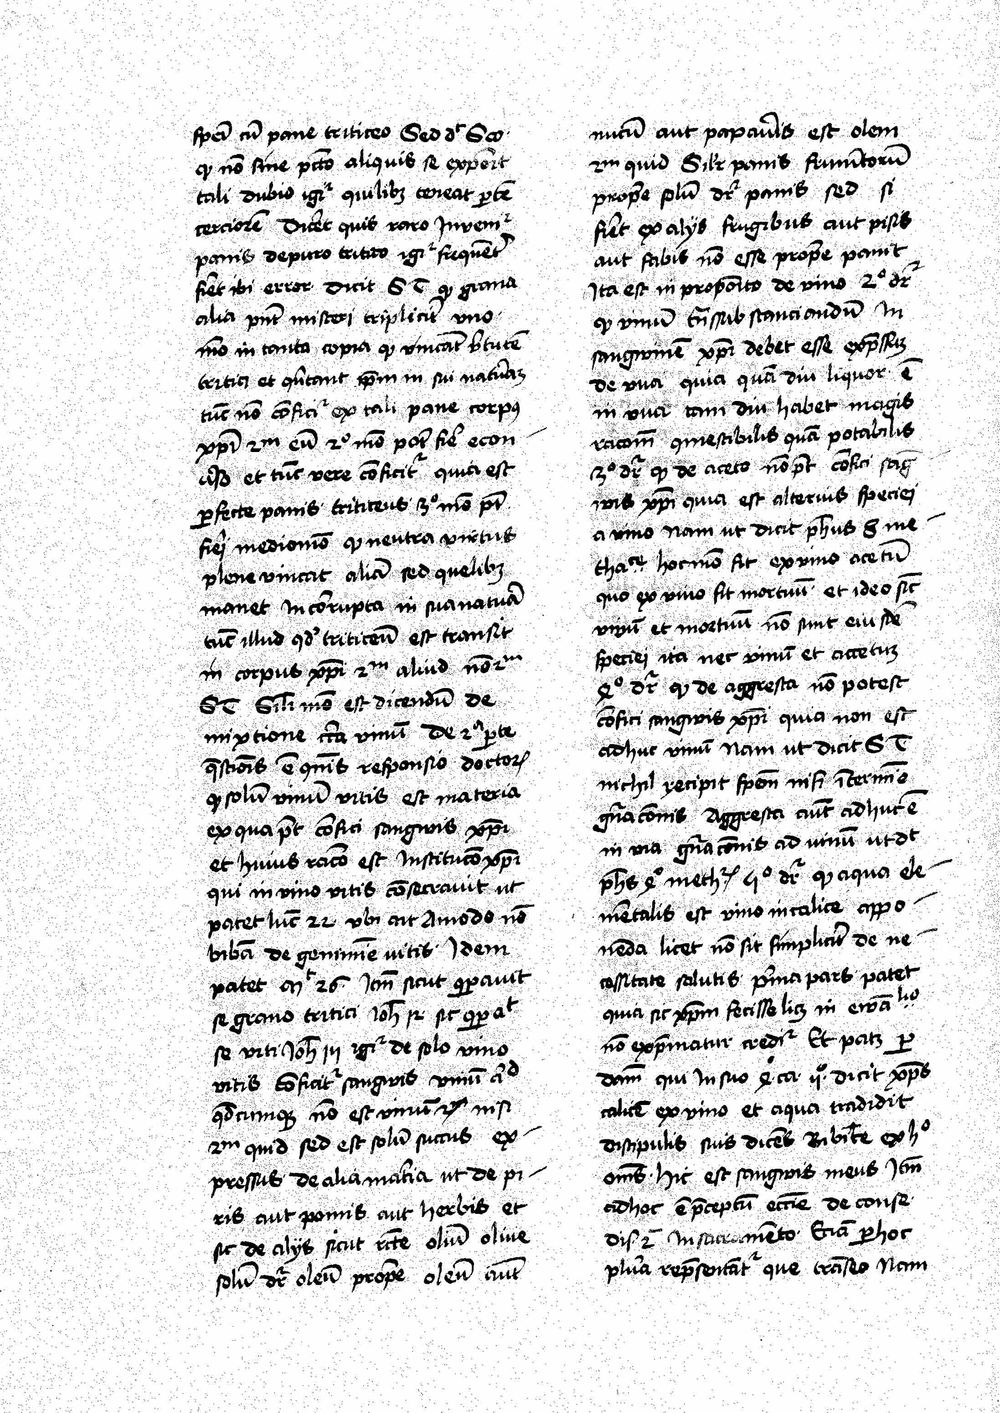 speciei cū pane triticeo Sed dr̄ Sco·
qƺ nō sine pctō aliquis se exponit
tali dubio igr̄ quilibꝫ teneat ptē
terciorē Diceret quis raro Invenir̄
panis de puro tritico igr̄ frequēter
fiet ibi error Dicit S T qƺ grana
alia pn̄t misteri triplicit̄ uno
mō in tanta copia qƺ vincāt v̄tutē
tritici et q̄utant ip̄m in sui naturaꝫ
tūc nō cōficir̄ ex tali pane corpꝯ
xp̄i 2m eū 2o mō pōt fieri econ
uerso et tūc vere cōficitr̄ quia est
ꝑfecte panis triticeus 3o mō pn̄t
fieri mediomō qƺ neutra virtus
plene vincat aliā sed quelibꝫ
manet Incorrupta in sua natura
tūc illud qd' triticeū est transit
in corpus xp̄i 2m aliud nō 2m
S T Sil̄i mō est dicendū de
mixtione circa vinū De 2a ꝑte
q̄stiōis ē q̄nis responsio doctorꝝ
qƺ solū vinū vitis est materia
ex qua pt̄ cōfici sangwis xp̄i
et huius racō est Institucō xp̄i
qui in vino vitis cōsecravit ut
patet luc̄ 22 vbi ait Amodo nō
bibā de genimīe vitis Idem
patet mt 26 Itm̄ sicut cōparavit
se grano tritici Joh̄ 12 sic cōparat
se viti Joh̄ 15 igr̄ de solo vino
vitis cōficitr̄ sangwis vinū aūt
qd̄cumqꝫ nō est vinū nisi
2m quid sed est solū succus ex
pressus de alia materia ut de pi
ris aut pomis aut herbis et
sic de alijs sicut recte oliū olive
solū dr̄ oleū prop̄e oleū aūt
nucū aut papaveris est oleū
2m quid Sil̄r panis frumētorū
prop̄e solū dr̄ panis sed si
fiet ex alijs frugibus aut pisis
aut fabis nō esse prop̄e panit
Ita est in proposito de vino 2o dr̄
qƺ vinū tn̄ssubstanciandū In
sangwinē xp̄i debet esse exp̄ssuꝫ
de vua quia quā diu liquor ē
in vua tam diu habet magis
racōm qmestibilis quā potabilis
3o dr̄ qƺ de aceto nō pt̄ cōfici sāg
wis xp̄i quia est alterius speciei
a vino Nam ut dicit ph̄us 8 me
tha hoc mō fit ex vino acetū
quo ex vivo fit mortuū et ideo sic̄
vivū et mortuū nō sunt eiusdē
speciei ita nec vinū et acetuꝫ
4o dr̄ qƺ de aggresta nō potest
cōfici sangwis xp̄i quia non est
adhuc vinū Nam ut dicit S T
nichil recipit spēm nisi ī termīo
gn̄acōnis Aggresta aūt adhuc ē
in via gn̄acōnis ad vinū ut dt
ph̄s 4o metheorꝝ 5o dr̄ qƺ aqua ele
mētalis est vino in calice appo
nēda licet nō sit simplicit̄ de ne
cessitate salutis p̄ma pars patet
quia sic xp̄m fecisse licꝫ in ewālio
nō exp̄matur creditr̄ Et patꝫ ꝑ
dam̄ qui In suo 4o ca dicit xp̄s
calicē ex vino et aqua tradidit
discipulis suis dicēs Bibite ex ho
om̄s hic est sangwis meus Itm̄
adhoc ē p̄ceptū ecc̄ie de conse
di 2 In sacramēto Eciā ꝑ hoc
plura rep̄sentātr̄ que trāseo Nam